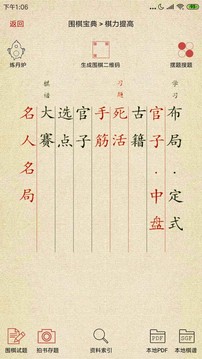 下午1:06
返回
围棋宝典 > 棋力提高
炼丹炉
生成围棋二维码
摆题搜题
学习
习题
布局·定式
官子·中盘
古籍
死活
手筋
官子
选点
大赛
名人名局
围棋试题
拍书存题
资料索引
PDF
本地PDF
SGF
本地棋谱